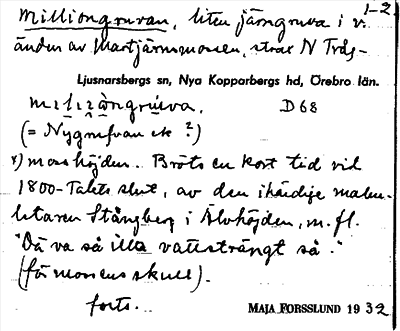 1-2.
Milliongruvan, liten järngruva i v.
änden av Svartjärnsmossen, strax N Trås-
Ljusnarsbergs sn, Nya Kopparbergs hd, Örebro län.
D 68
(= Nygrufvan ek ?)
x) mosshöjden. Bröts en kort tid vid
1800-talets slut, av den ihärdige malm-
letaren Stångberg i Älvhöjden, m.fl.
"Dä va så illa vattsträngt så."
(för mossens skull).
forts.
MAJA FORSSLUND 1932